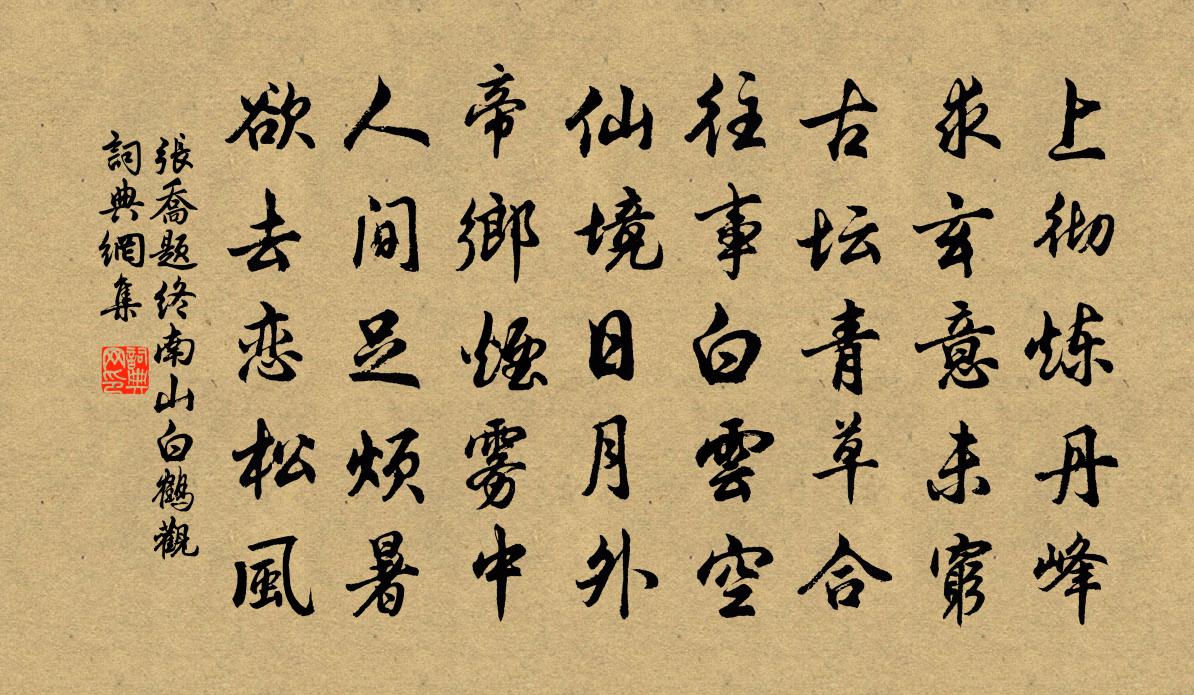 上彻炼丹峰
求玄意未窮
古坛青草合
往事白雲空
仙境日月外
帝鄉煙雾中
人间足烦暑
欲去恋松風
張喬题终南山白鶴觀
詞典網集
詞典网印